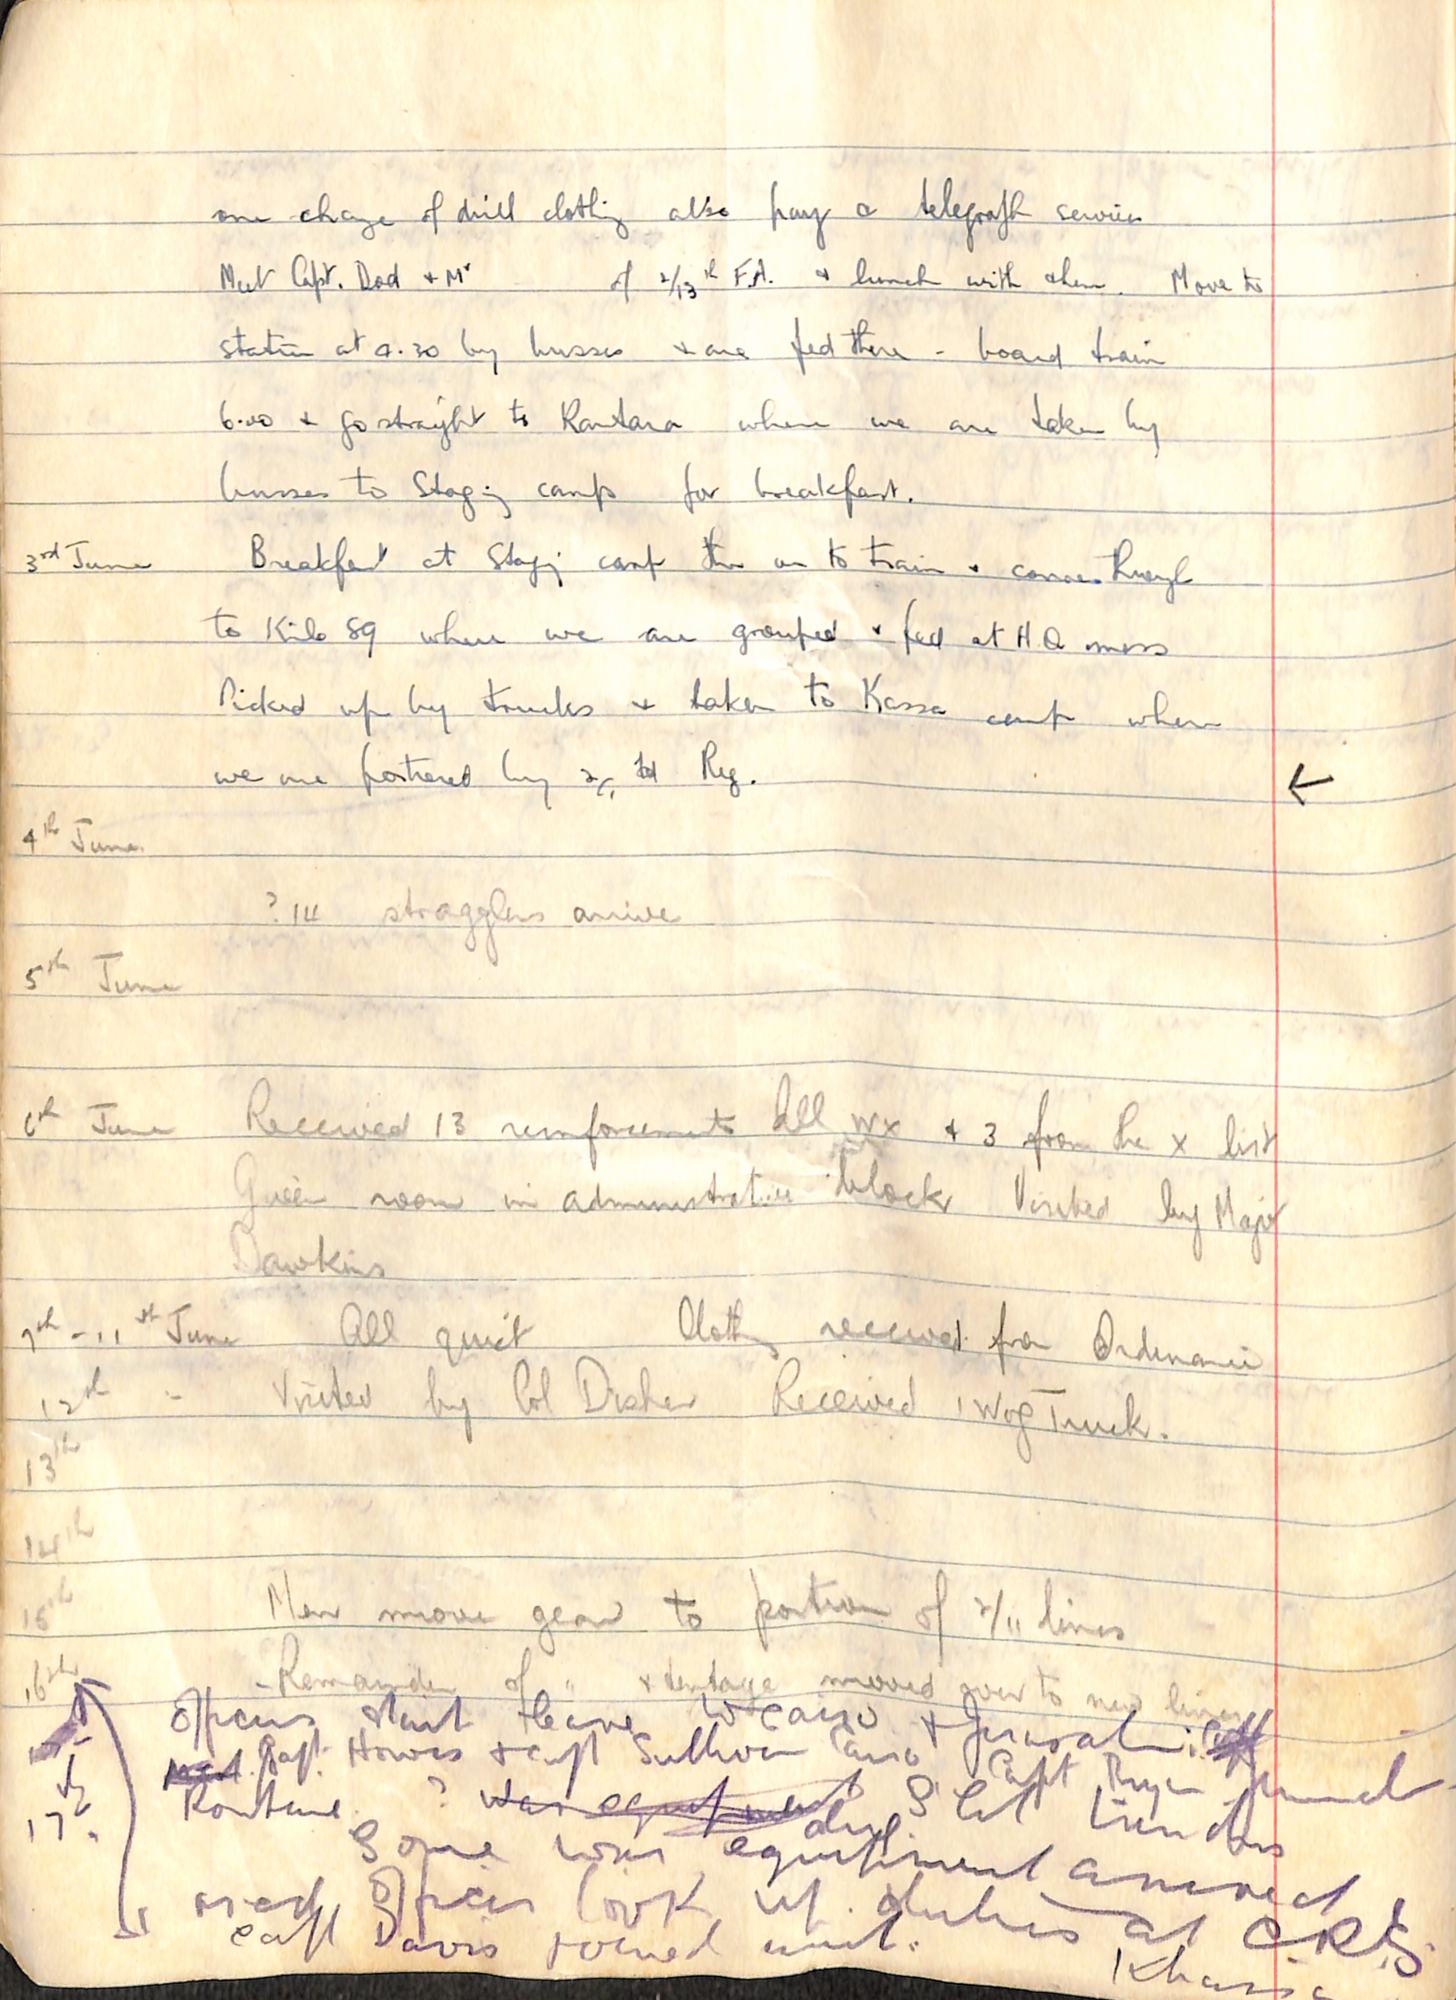 one change of drill clothing also pay & telegraph service
Meet Capt. Dod + Mr of 2/13th F.A. + lunch with them. Move to
station at 4.30 by busses + are fed there - board train
6.00 + go straight to Kantara where we are taken by
busses to Staging camp for breakfast.
3rd June Breakfast at Staging camp then on to train + come through
to Kilo 89 where we are grouped + fed at H.Q mess
Picked up by trucks + taken to Kassa camp where
we are by 2/1 Reg.
←
4th June
? 14 stragglers arrive
5th June
6th June Received 13 reinforcements all WX + 3 from the X list
Given room in administrative block Visited by Major
Dawkins
7th - 11th June All quiet Clothing received from Ordinance
12th " Visited by Col Disher Received 1 Wog Truck.
13th
14th
15th Men move gear to portion of 2/11 lines
16th - Remainder of " + tentage moved over to new lines
Officers start leave to Cairo + Jerusalem
Capt Howes + Capt Sullivan Cairo Capt Bryan
17. Routine ?
Some more equipment arrived
Officers took up duties at C.R.S.
Capt Davis joined unit. Khassa